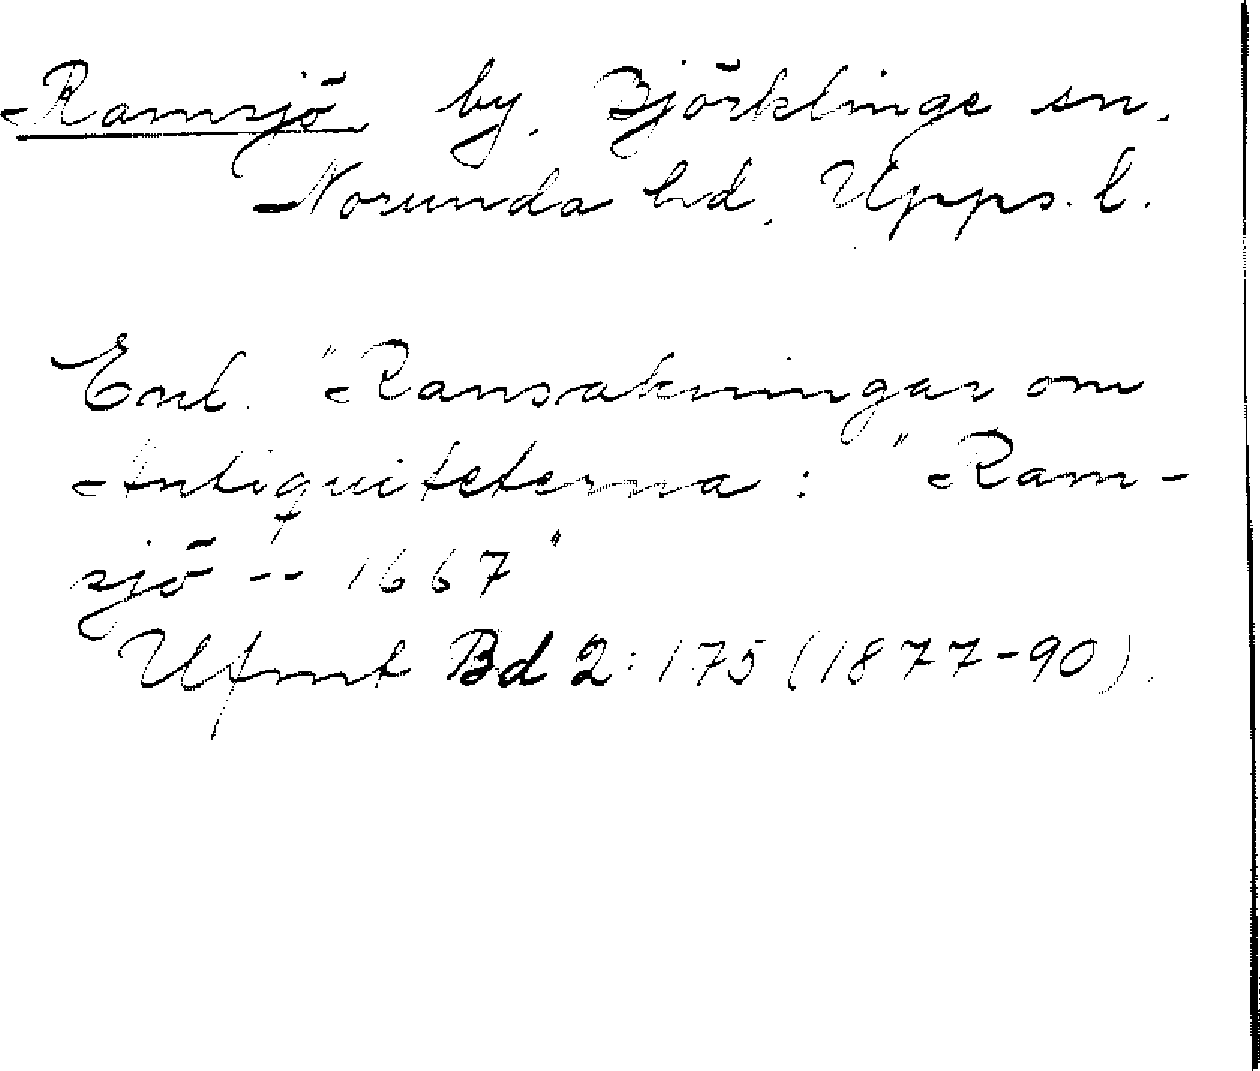 Ramsjö by, Björklinge sn,
Norunda hd, Upps. l.
Enl. "Ransakningar om
Antiquiteterna: "Ram-
sjö -- 1667"
Ufmt Bd 2: 175 (1877-90).